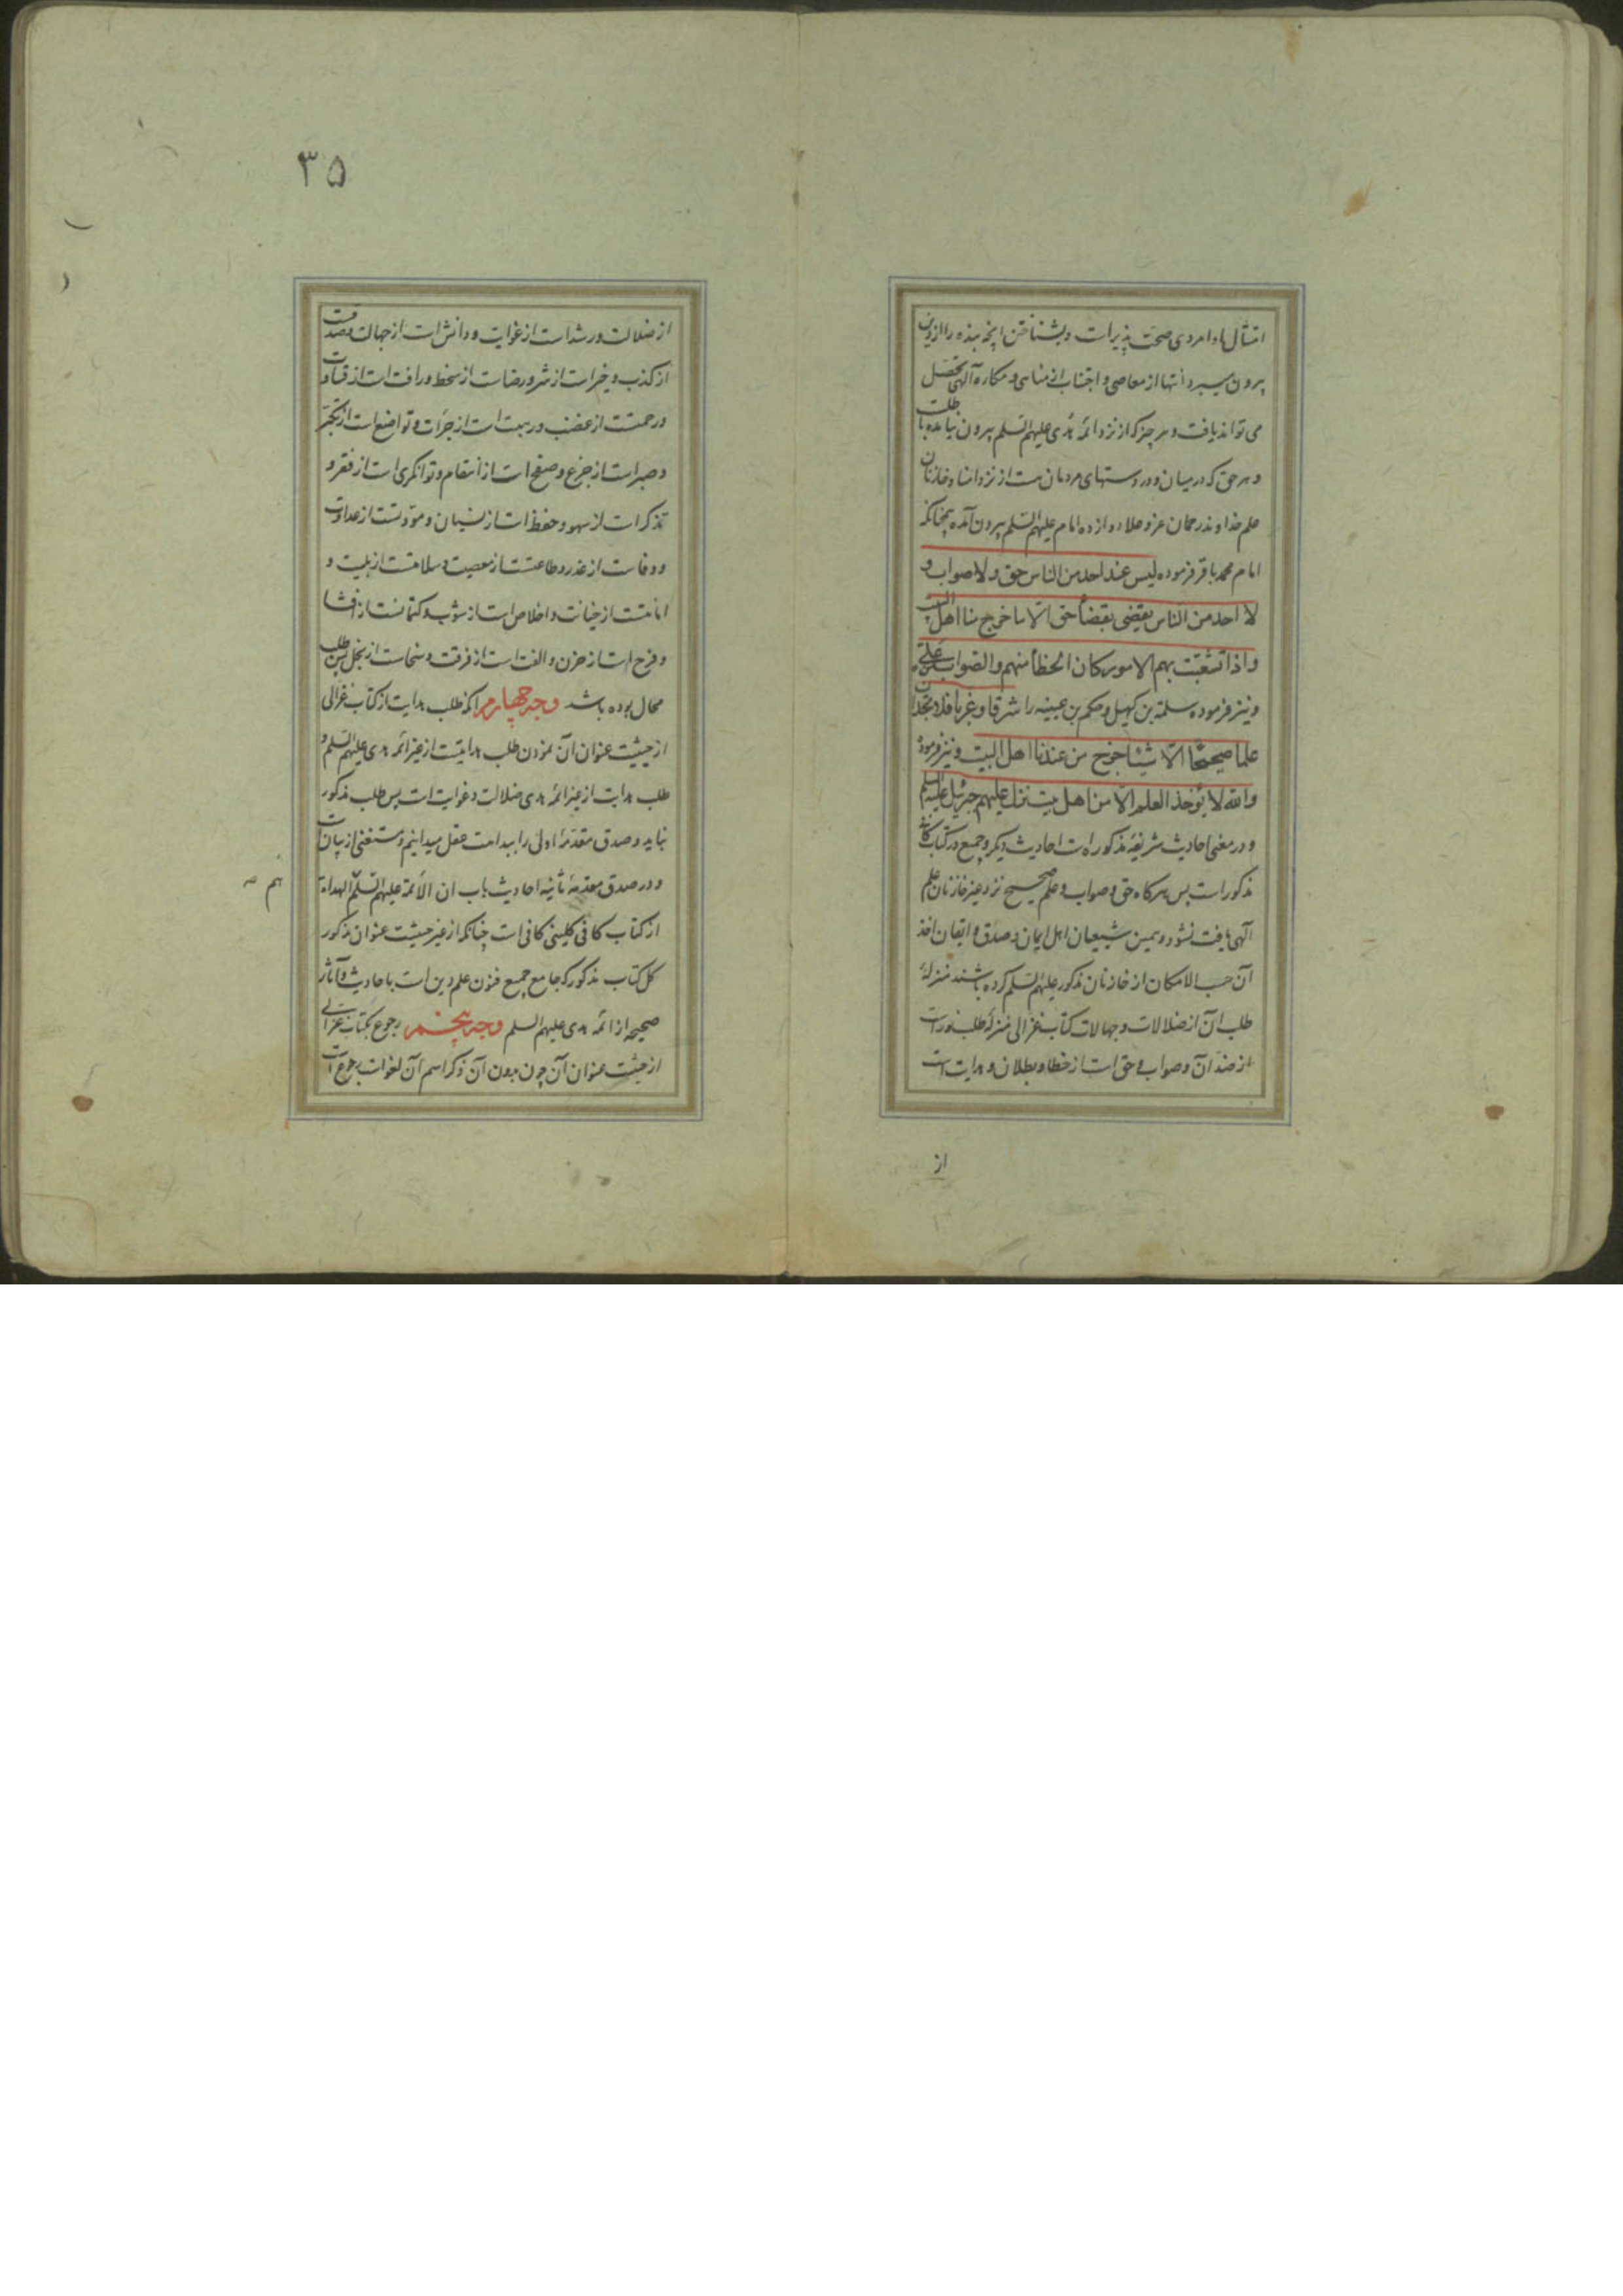 امتثال باوامر وی صحت پذیرست و بشناختن آنچه بنده را از دین
بیرون میبرد و انتها از معاصی و اجتناب از مناهی و مکاره آلهی تحصل
می تواند یافت و هر چیز که از نزد ائمه هدی علیهم السلم بیرون نیامده باطلست
و هر حق که در میان و در دستهای مردمان هست از نزد امنا و خازنان
علم خداوند رحمان عز و علا دوازده امام علیهم السلم بیرون آمده همچنانکه
امام محمد باقر فرموده لیس عند احد من الناس حق ولا صواب و
لا احد من الناس یقضی بقضاء حق الا ما خرج منا اهل البیت
واذا تشعبت بهم الامور کان الخطأ منهم والصواب من علی ع
و نیز فرموده سلمة بن کهیل و حکم بن عیینه را شرقا وغربا فلا تجدان
علما صحیحا الا شیئا خرج من عندنا اهل البیت و نیز فرموده
والله لا یؤخذ العلم الا من اهل بیت نزل علیهم جبرئیل علیه السلم
و در معنی احادیث شریفهٔ مذکوره است احادیث دیگر و جمیع در کتاب کافی
مذکور است پس هرگاه حق و صواب و علم صحیح نزد غیر خازنان علم
آلهی یافت نشود و همین شیعیان اهل ایمان و صدق و ایقان اخذ
آن حسب الامکان از خازنان مذکور علیهم السلم کرده باشند بمنزلهٔ
طلب آن از ضلالات و جهالات کتاب غزالی بمنزلهٔ طلب نور است
از ضد آن و صواب و حق است از خطا و بطلان و هدایت است
از
۳۵
از ضلالت و رشد است از غوایت و دانش است از جهالت و صدقست
از کذب و خیر است از شر و رضاست از سخط و رافت است از قساوت
و رحمتست از غضب و رهبت است از جرأت و تواضع است از تکبر
و صبر است از جزع و صفح است از انتقام و توانگری است از فقر و
تذکر است از سهو و حفظ است از نسیان و مودتست از عداوت
و وفاست از غدر و طاعتست از معصیت و سلامتست از بلیت و
امانتست از خیانت و اخلاص است از شوب و کتمانست از افشا
و فرح است از حزن و الفت است از فرقت و سخاست از بخل پس طلب
محال بوده باشد وجه چهارم آنکه طلب هدایت از کتاب غزالی
از حیثیت عنوان آن نمودن طلب هدایتست از غیر ائمه هدی علیهم السلم و
طلب هدایت از غیر ائمه هدی ضلالت و غوایت است پس طلب مذکور
نباید و صدق مقدمهٔ اولی را ببداهت عقل میدانیم و مستغنی از بیان است
و در صدق مقدمهٔ ثانیه احادیث باب ان الائمة علیهم السلم الهداة
هم
از کتاب کافی کلینی کافی است چنانکه از غیر حیثیت عنوان مذکور
کل کتاب مذکور که جامع جمیع فنون علم دین است باحادیث و آثار
صحیحه از ائمه هدی علیهم السلم وجه پنجم رجوع بکتاب غزالی
از حیثیت عنوان آن چون بدون آن ذکر اسم آن لغو است رجوع است